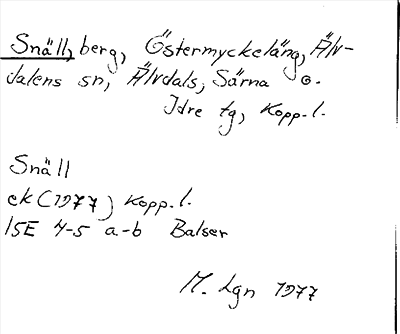 Snäll, berg, Östermyckeläng, Älv-
dalens sn, Älvdals, Särna o.
Idre tg, Kopp.l.
Snäll
ek (1977) Kopp.l.
15E 4-5 a-b Balser
M. Lgn 1977